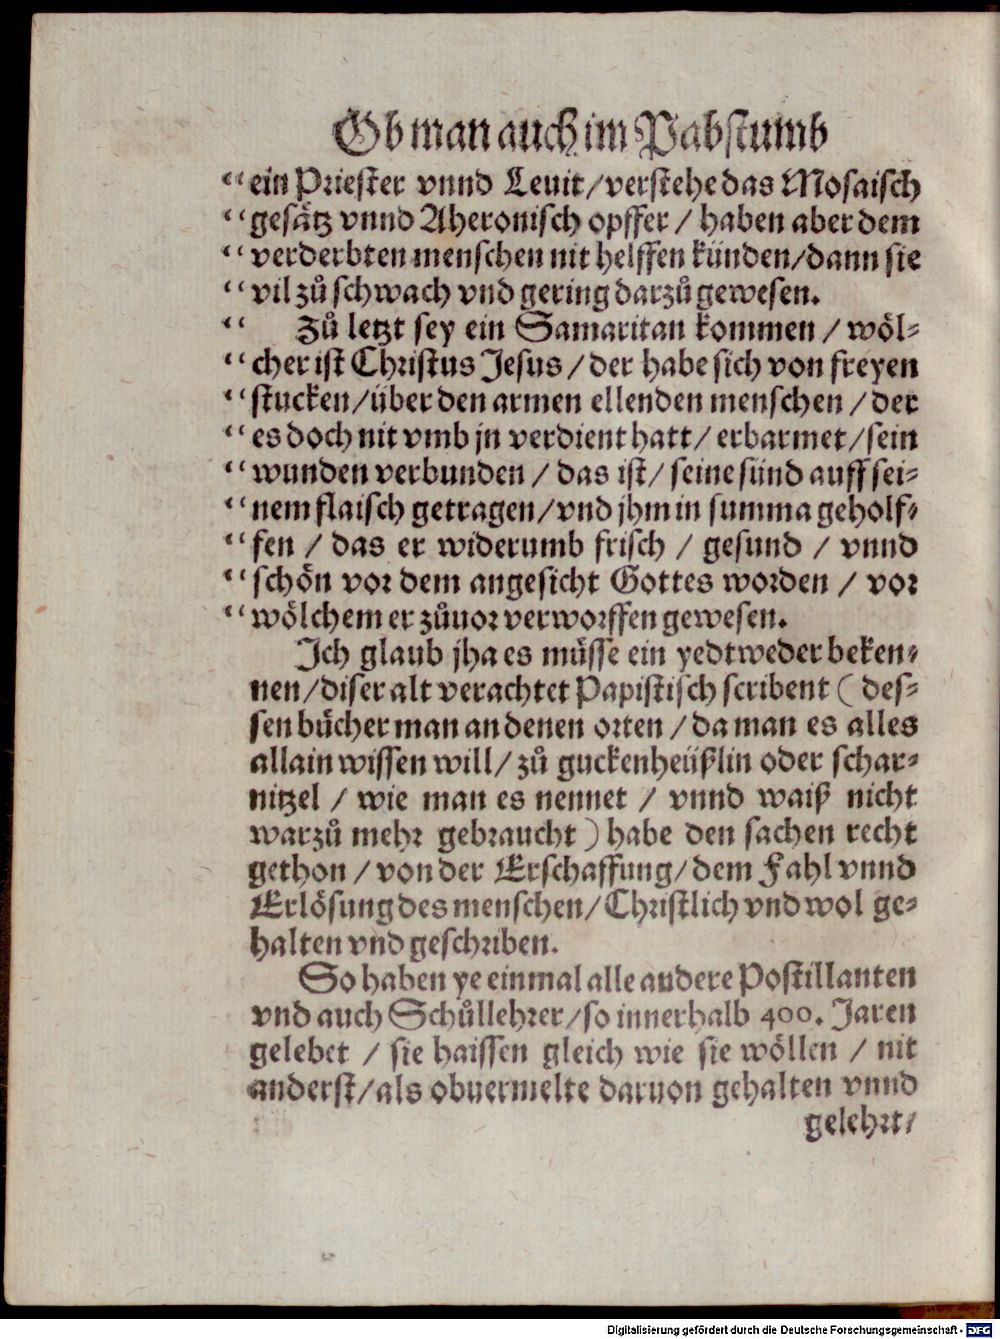 Ob man auch im Pabstumb
“ ein Priester vnnd Leuit/verstehe das Mosaisch
“ gesätz vnnd Aheronisch opffer / haben aber dem
“ verderbten menschen nit helffen künden/dann sie
“ vil zů schwach vnd gering darzů gewesen.
“ Zů letzt sey ein Samaritan kommen / wöl-
“ cher ist Christus Jesus / der habe sich von freyen
“ stucken/über den armen ellenden menschen / der
“ es doch nit vmb jn verdient hatt/ erbarmet/sein
“ wunden verbunden / das ist/ seine sünd auff sei-
“ nem flaisch getragen/vnd jhm in summa geholf-
“ fen / das er widerumb frisch / gesund / vnnd
“ schön vor dem angesicht Gottes worden / vor
“ wölchem er zůuor verworffen gewesen.
Ich glaub jha es müsse ein yedtweder beken-
nen/diser alt verachtet Papistisch scribent ( des-
sen bücher man an denen orten / da man es alles
allain wissen will/ zů guckenheüßlin oder schar-
nitzel / wie man es nennet / vnnd waiß nicht
warzů mehr gebraucht ) habe den sachen recht
gethon / von der Erschaffung/dem Fahl vnnd
Erlösung des menschen/Christlich vnd wol ge-
halten vnd geschriben.
So haben ye einmal alle andere Postillanten
vnd auch Schůllehrer/so innerhalb 400. Jaren
gelebet / sie haissen gleich wie sie wöllen / nit
anderst/als obuermelte daruon gehalten vnnd
gelehrt/
Digitalisierung gefördert durch die Deutsche Forschungsgemeinschaft - DFG